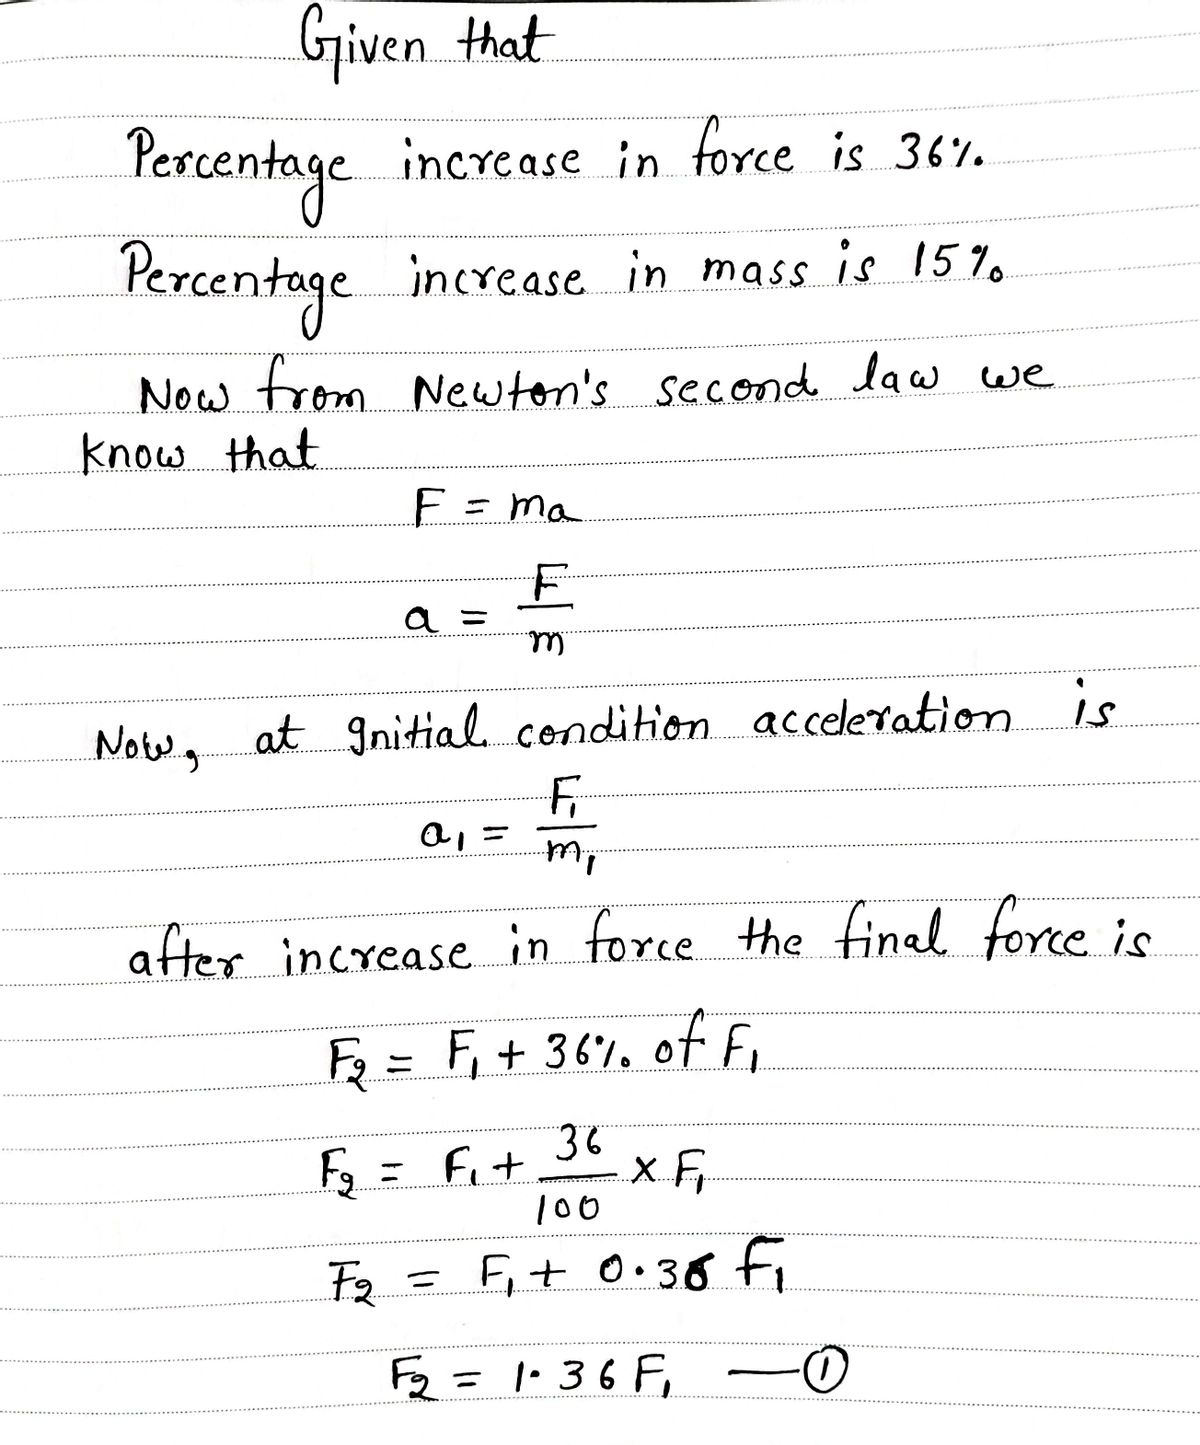 Given that
Percentage increase in force is 36%.
Percentage increase in mass is 15%
Now from Newton's second law we
know that
F = ma
a = F/m
Now, at Initial condition acceleration is
a₁ = F₁/m₁
after increase in force the final force is
F₂ = F₁ + 36% of F₁
F₂ = F₁ + 36/100 × F₁
F₂ = F₁ + 0.36 F₁
F₂ = 1.36 F₁ —①